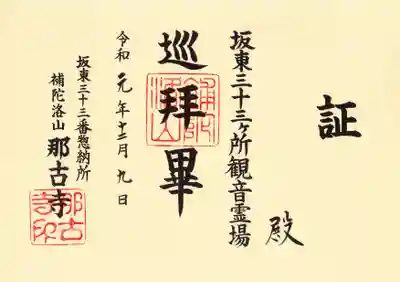 証
殿
坂東三十三ヶ所観音霊場
巡拜畢
令和元年十二月九日
坂東三十三番惣納所
補陀洛山 那古寺
補陀洛山
那古寺印